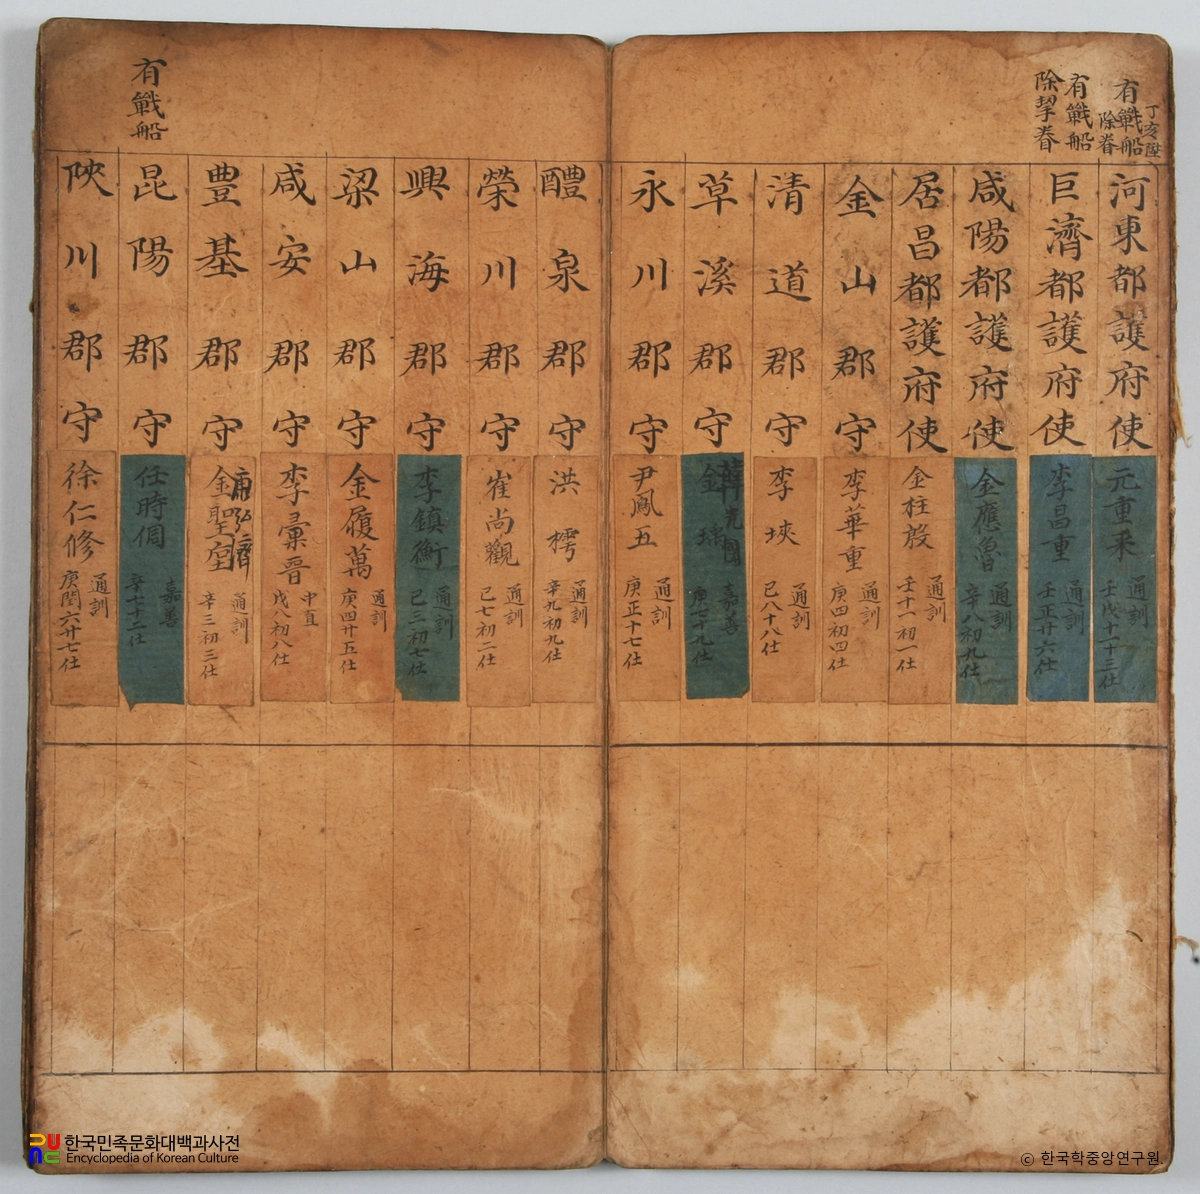 丁亥陞
有戰船
除眷
河東都護府使
元重采
通訓
壬戊十二十三仕
有戰船
除挈眷
巨濟都護府使
李昌重
通訓
壬正廿六仕
咸陽都護府使
金應魯
通訓
辛八初九仕
居昌都護府使
金柱殷
通訓
壬十一初一仕
金山郡守
李華重
通訓
庚四初四仕
清道郡守
李埉
通訓
己八十八仕
草溪郡守
嘉善
永川郡守
尹鳳五
通訓
庚正十七仕
醴泉郡守
洪樗
通訓
辛九初九仕
榮川郡守
崔尚觀
通訓
己七初二仕
興海郡守
李鎮衡
通訓
己三初七仕
梁山郡守
金履萬
通訓
庚四廿五仕
咸安郡守
李彙晋
中直
戊八初八仕
豊基郡守
通訓
辛三初三仕
有戰船
昆陽郡守
任時倜
嘉善
辛七十二仕
陜川郡守
徐仁修
通訓
庚閏六廿七仕
한국민족문화대백과사전
Encyclopedia of Korean Culture
ⓒ 한국학중앙연구원.